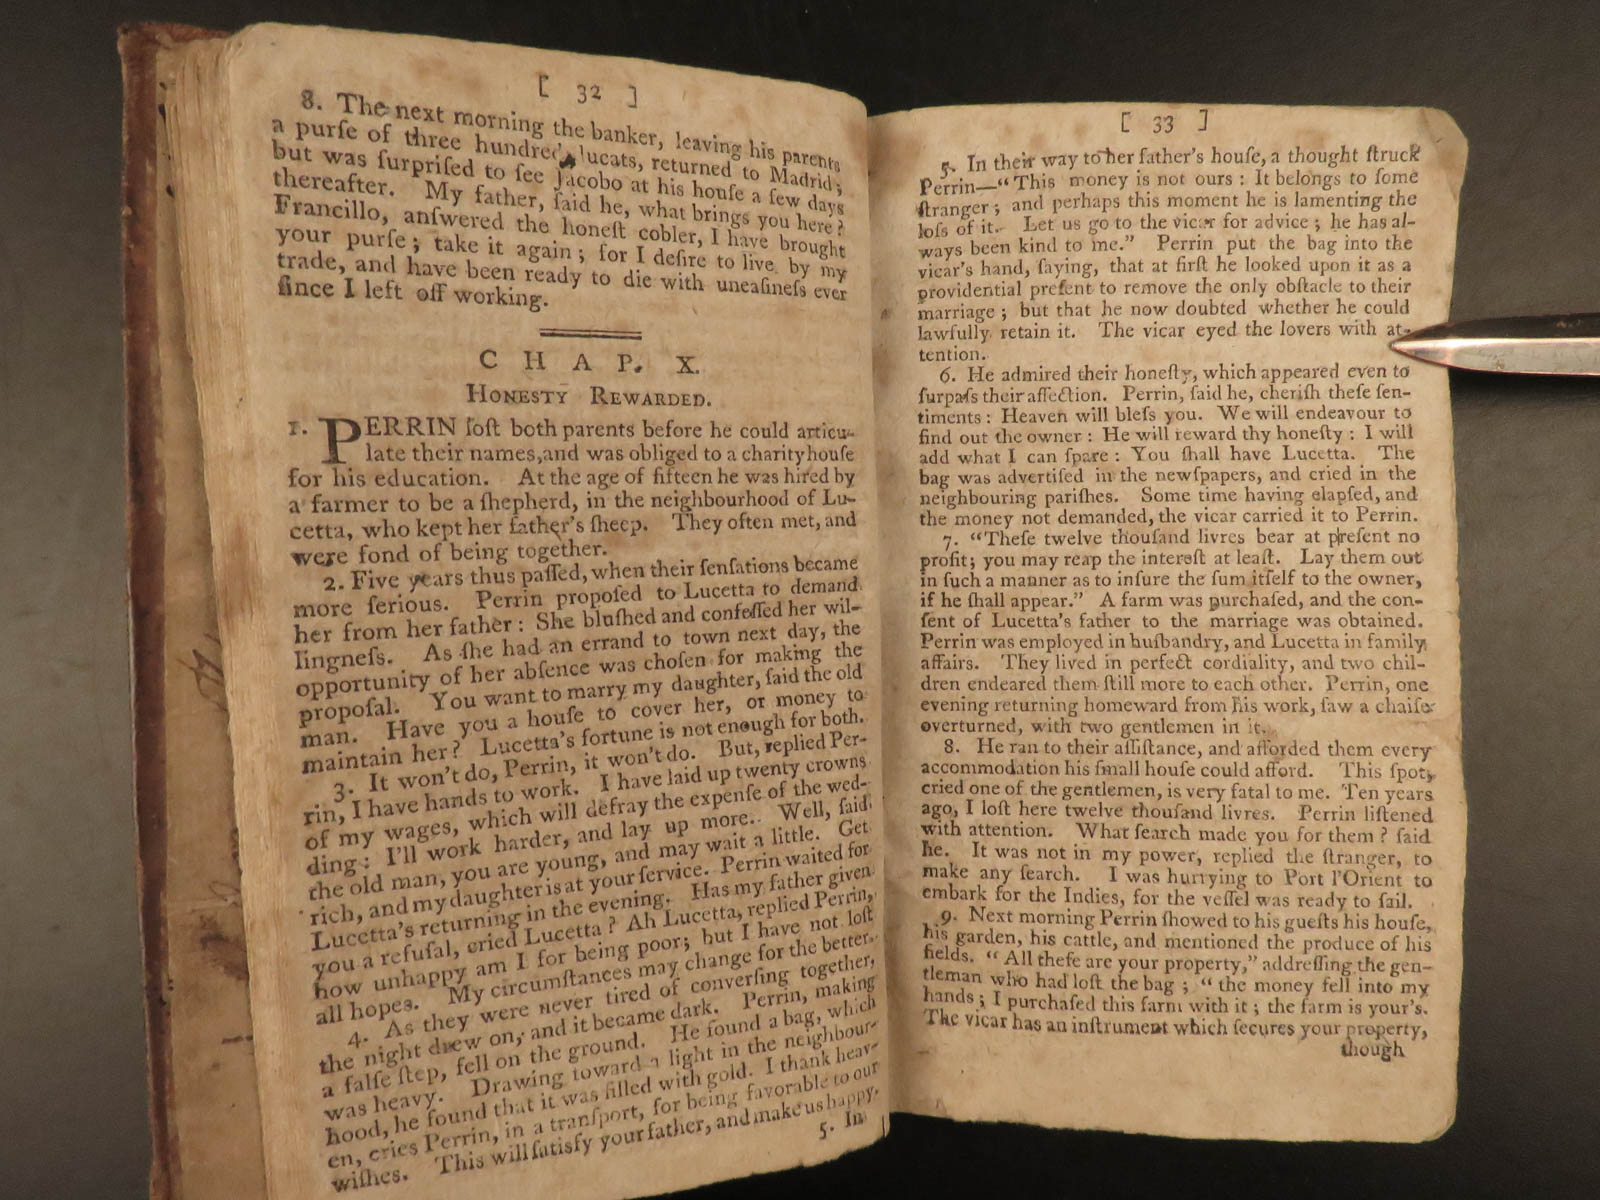 [ 32 ]
8. The next morning the banker, leaving his parents
a purſe of three hundred ducats, returned to Madrid;
but was ſurpriſed to ſee Jacobo at his houſe a few days
thereafter. My father, ſaid he, what brings you here?
Francillo, anſwered the honeſt cobler, I have brought
your purſe; take it again; for I deſire to live by my
trade, and have been ready to die with uneaſineſs ever
ſince I left off working.
CHAP. X.
HONESTY REWARDED.
1. PERRIN loſt both parents before he could articu-
late their names, and was obliged to a charity houſe
for his education. At the age of fifteen he was hired by
a farmer to be a ſhepherd, in the neighbourhood of Lu-
cetta, who kept her father's ſheep. They often met, and
were fond of being together.
2. Five years thus paſſed, when their ſenſations became
more ſerious. Perrin propoſed to Lucetta to demand
her from her father: She bluſhed and confeſſed her wil-
lingneſs. As ſhe had an errand to town next day, the
opportunity of her abſence was choſen for making the
propoſal. You want to marry my daughter, ſaid the old
man. Have you a houſe to cover her, or money to
maintain her? Lucetta's fortune is not enough for both.
It won't do, Perrin, it won't do. But, replied Per-
3. rin, I have hands to work. I have laid up twenty crowns
of my wages, which will defray the expenſe of the wed-
ding: I'll work harder, and lay up more. Well, ſaid
the old man, you are young, and may wait a little. Get
rich, and my daughter is at your ſervice. Perrin waited for
Lucetta's returning in the evening. Has my father given
you a refuſal, cried Lucetta? Ah Lucetta, replied Perrin,
how unhappy am I for being poor; but I have not loſt
all hopes. My circumſtances may change for the better.
4. As they were never tired of converſing together,
the night drew on, and it became dark. Perrin, making
a falſe ſtep, fell on the ground. He found a bag, which
was heavy. Drawing toward a light in the neighbour-
hood, he found that it was filled with gold. I thank heav-
en, cries Perrin, in a tranſport, for being favorable to our
wiſhes. This will ſatisfy your father, and make us happy.
5. In
[ 33 ]
5. In their way to her father's houſe, a thought ſtruck
Perrin—“This money is not ours: It belongs to ſome
ſtranger; and perhaps this moment he is lamenting the
loſs of it. Let us go to the vicar for advice; he has al-
ways been kind to me.” Perrin put the bag into the
vicar's hand, ſaying, that at firſt he looked upon it as a
providential preſent to remove the only obſtacle to their
marriage; but that he now doubted whether he could
lawfully retain it. The vicar eyed the lovers with at-
tention.
6. He admired their honeſty, which appeared even to
ſurpaſs their affection. Perrin, ſaid he, cheriſh theſe ſen-
timents: Heaven will bleſs you. We will endeavour to
find out the owner: He will reward thy honeſty: I will
add what I can ſpare: You ſhall have Lucetta. The
bag was advertiſed in the newſpapers, and cried in the
neighbouring pariſhes. Some time having elapſed, and
the money not demanded, the vicar carried it to Perrin.
7. “Theſe twelve thouſand livres bear at preſent no
profit; you may reap the intereſt at leaſt. Lay them out
in ſuch a manner as to inſure the ſum itſelf to the owner,
if he ſhall appear.” A farm was purchaſed, and the con-
ſent of Lucetta's father to the marriage was obtained.
Perrin was employed in huſbandry, and Lucetta in family
affairs. They lived in perfect cordiality, and two chil-
dren endeared them ſtill more to each other. Perrin, one
evening returning homeward from his work, ſaw a chaiſe
overturned, with two gentlemen in it.
8. He ran to their aſſiſtance, and afforded them every
accommodation his ſmall houſe could afford. This ſpot,
cried one of the gentlemen, is very fatal to me. Ten years
ago, I loſt here twelve thouſand livres. Perrin liſtened
with attention. What ſearch made you for them? ſaid
he. It was not in my power, replied the ſtranger, to
make any ſearch. I was hurrying to Port l'Orient to
embark for the Indies, for the veſſel was ready to ſail.
9. Next morning Perrin ſhowed to his gueſts his houſe,
his garden, his cattle, and mentioned the produce of his
fields. “All theſe are your property,” addreſſing the gen-
tleman who had loſt the bag; “the money fell into my
hands; I purchaſed this farm with it; the farm is your's.
The vicar has an inſtrument which ſecures your property,
though